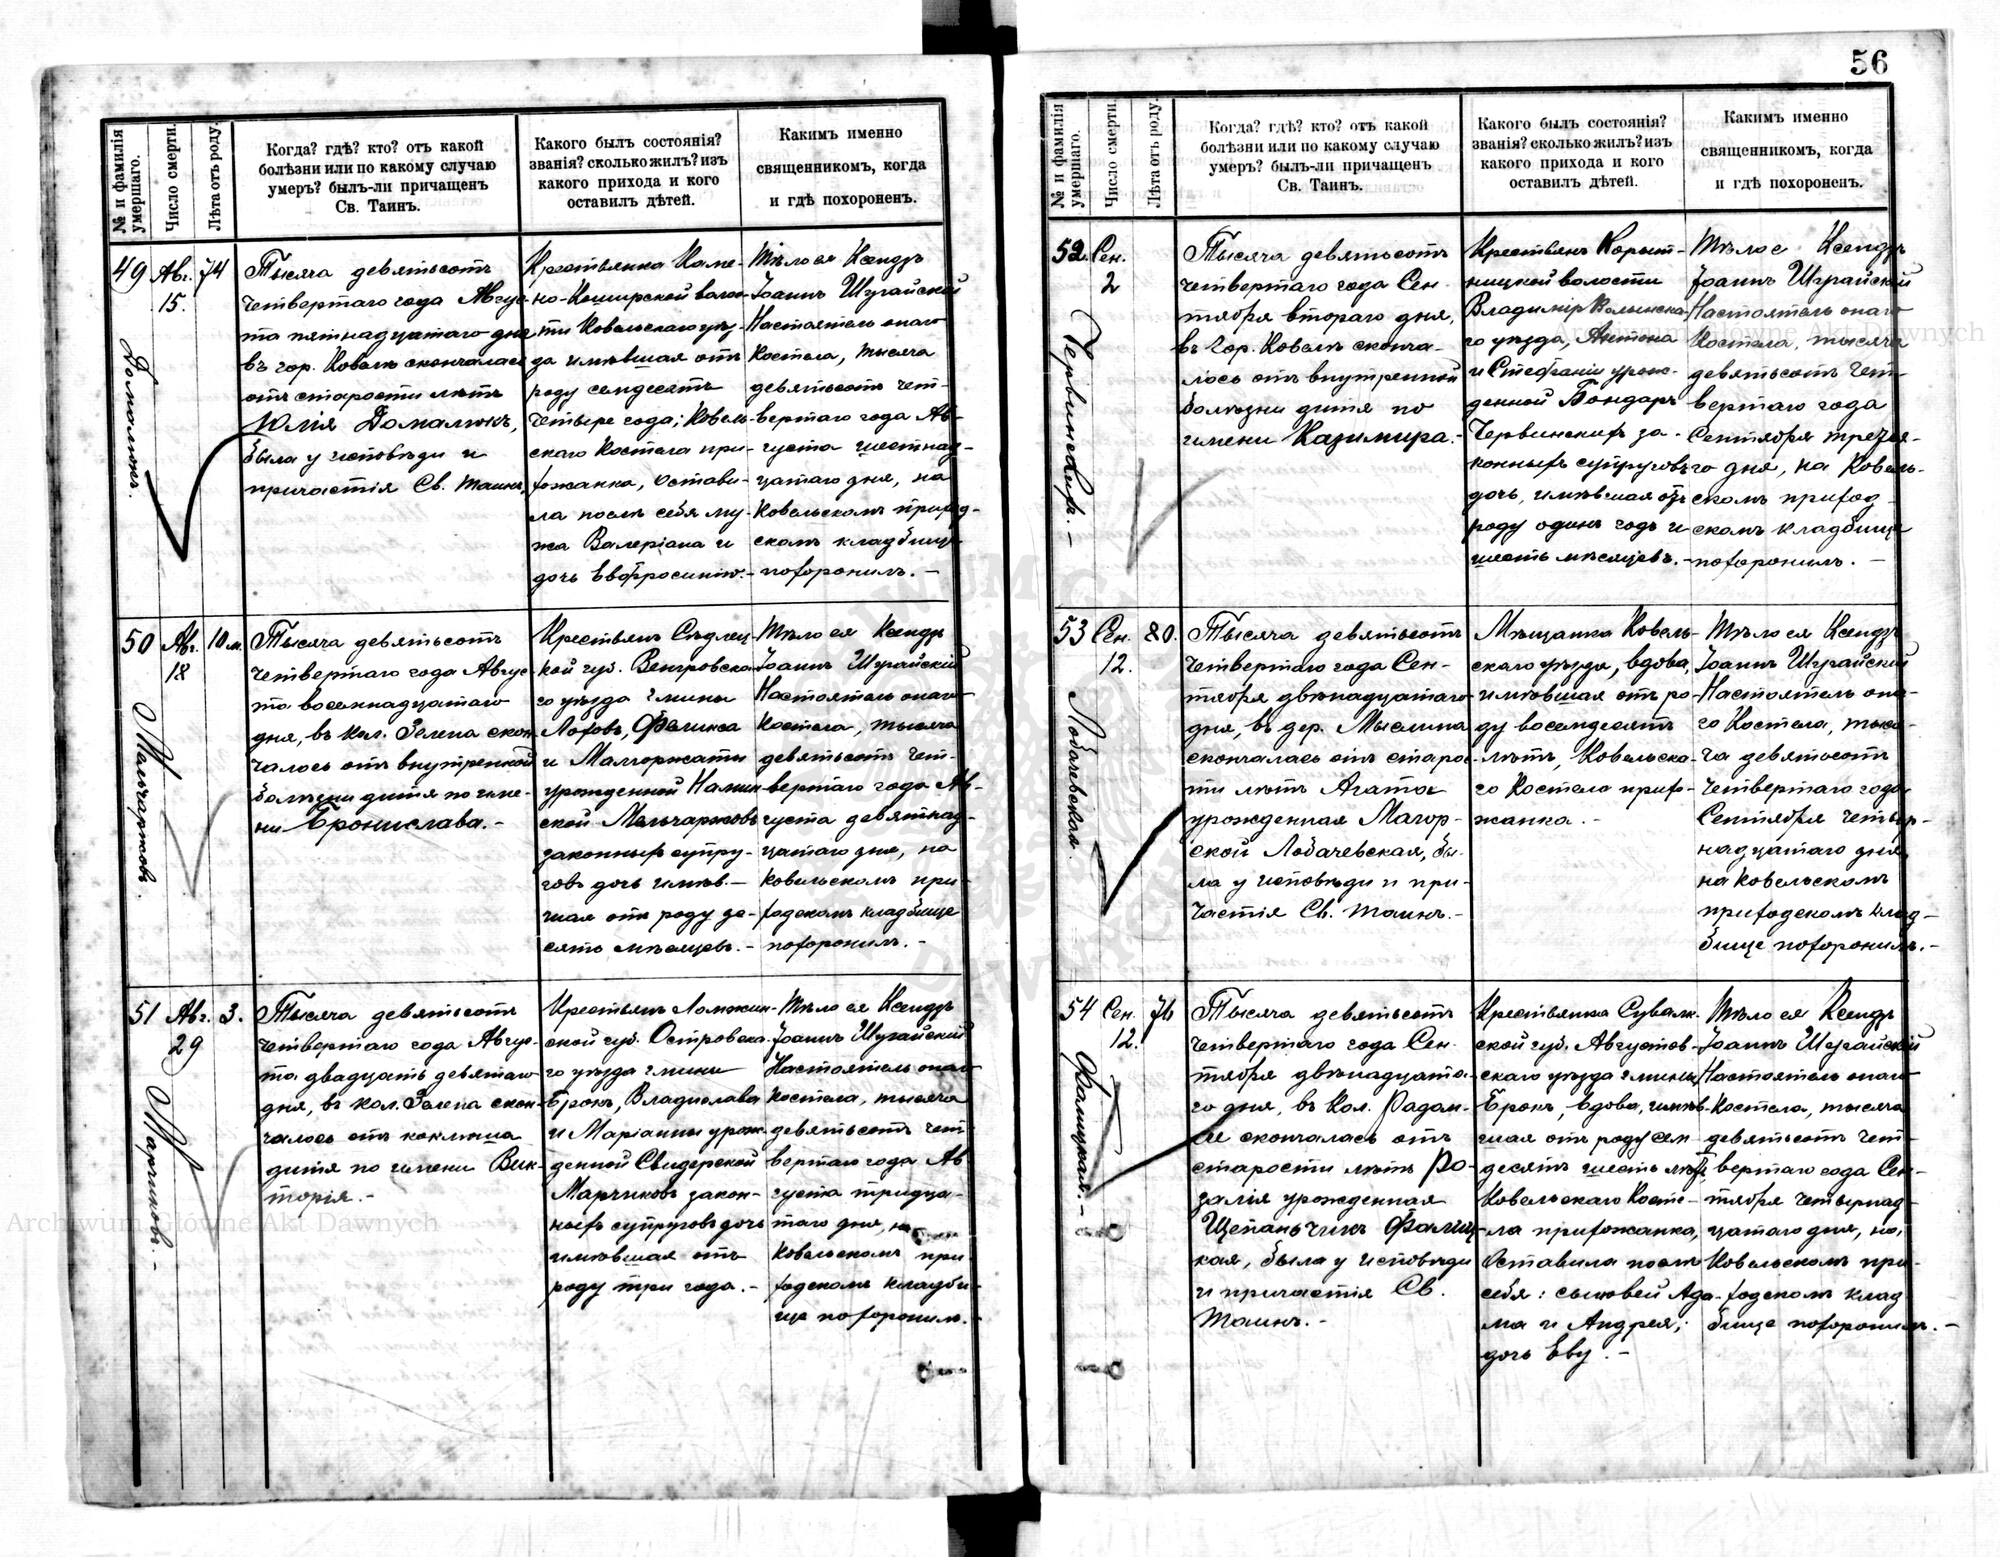 56
№ и фамилія умершаго.
Число смерти.
Лѣта отъ роду.
Когда? гдѣ? кто? отъ какой
болѣзни или по какому случаю
умеръ? былъ-ли причащенъ
Св. Таинъ.
Какого былъ состоянія?
званія? сколько жилъ? изъ
какого прихода и кого
оставилъ дѣтей.
Какимъ именно
священникомъ, когда
и гдѣ похороненъ.
49
Авг.
15.
74
Домалюкъ.
Тысяча девятьсотъ
четвертаго года Авгус-
та пятнадцатаго дня
въ гор. Ковелѣ скончалась
отъ старости лѣтъ
Юлія Домалюкъ,
была у исповѣди и
причастія Св. Таинъ.
Крестьянка Каме-
но-Коширской волос-
ти Ковельскаго уѣз-
да имѣвшая отъ
роду семдесятъ
четыре года; Ковель-
скаго Костела при-
хожанка, остави-
ла послѣ себя му-
жа Валеріана и
дочь Евфросинію.-
Тѣло ея Ксендзъ
Іоаннъ Шугайскій
Настоятель онаго
Костела, тысяча
девятьсотъ чет-
вертаго года Ав-
густа шестнад-
цатаго дня, на
Ковельскомъ приход-
скомъ кладбищѣ
похоронилъ. -
50
Авг.
18
10 м.
Мельчарковъ.
Тысяча девятьсотъ
четвертаго года Авгус-
та восемнадцатаго
дня, въ кол. Зелена скон-
чалось отъ внутренной
болѣзни дитя по име-
ни Бронислава.-
Крестьянъ Сѣдлец-
кой губ. Венгровска-
го уѣзда гмины
Лоховъ, Феликса
и Малгоржаты
урожденной Камин-
ской Мельчарковъ
законныхъ супру-
говъ дочь имѣв.-
шая отъ роду де-
сять мѣсяцевъ. -
Тѣло ея Ксендзъ
Іоаннъ Шугайскій
Настоятель онаго
Костела, тысяча
девятьсотъ чет-
вертаго года Ав-
густа девятнад-
цатаго дня, на
Ковельскомъ при-
ходскомъ кладбище
похоронилъ. -
51
Авг.
29
3.
Марчиковъ. -
Тысяча девятьсотъ
четвертаго года Авгус-
та двадцать девятаго
дня, въ кол. Зелена скон-
чалось отъ коклюша
дитя по имени Вик-
торія.-
Крестьянъ Ломжин-
ской губ. Островска-
го уѣзда гмины
Брокъ, Владислава
и Маріанны урож-
денной Свидерской
Марчиковъ закон-
ныхъ супруговъ дочь
имѣвшая отъ
роду три года. -
Тѣло ея Ксендзъ
Іоаннъ Шугайскій
Настоятель онаго
Костела, тысяча
девятьсотъ чет-
вертаго года Ав
густа тридца-
таго дня, на
Ковельскомъ при-
ходскомъ кладби-
ще похоронилъ.-
№ и фамилія умершаго.
Число смерти.
Лѣта отъ роду.
Когда? гдѣ? кто? отъ какой
болѣзни или по какому случаю
умеръ? былъ-ли причащенъ
Св. Таинъ.
Какого былъ состоянія?
званія? сколько жилъ? изъ
какого прихода и кого
оставилъ дѣтей.
Какимъ именно
священникомъ, когда
и гдѣ похороненъ.
52.
Сен.
2
Червинскихъ. -
Тысяча девятьсотъ
четвертаго года Сен-
тября втораго дня,
въ гор. Ковелѣ сконча-
лось отъ внутренной
болѣзни дитя по
имени Казимира.-
Крестьянъ Корыт-
ницкой волости
Владимір Волынска-
го уѣзда, Антона
и Стефаніи урож-
денной Бондаръ
Червинскихъ за-
конныхъ супруговъ
дочь, имѣвшая отъ
роду одинъ годъ и
шесть мѣсяцевъ. -
Тѣло е Ксендзъ
Іоаннъ Шугайскій
Настоятель онаго
Костела, тысяча
девятьсотъ чет-
вертаго года
Сентября третья-
го дня, на Ковель-
скомъ приход-
скомъ кладбище
похоронилъ. -
53
Сен.
12.
80.
Лобачевская.
Тысяча девятьсотъ
четвертаго года Сен-
тября двѣнадцатаго
дня, въ дер. Мыслина
скончалась отъ старос-
ти лѣтъ Агата
урожденная Магор-
ской Лобачевская, бы-
ла у исповѣди и при-
частія Св. Таинъ.-
Мѣщанка Ковель-
скаго уѣзда, вдова,
имѣвшая отъ ро-
ду восемдесятъ
лѣтъ, Ковельска-
го Костела прихо-
жанка. -
Тѣло ея Ксендзъ
Іоаннъ Шугайскій
Настоятель она-
го Костела, тыся-
ча девятьсотъ
четвертаго года
Сентября четыр-
надцатаго дня
на Ковельскомъ
приходскомъ клад-
бище похоронилъ.-
54
Сен.
12.
76
Фалицкая. -
Тысяча девятьсотъ
четвертаго года Сен-
тября двѣнадцата-
го дня, въ Кол. Радом-
ле скончалась отъ
старости лѣтъ Ро-
залія урожденная
Щепаньчикъ Фалиц-
кая, была у исповѣди
и причастія Св.
Таинъ. -
Крестьянка Сувалк-
ской губ. Августов-
скаго уѣзда гмины
Брокъ, вдова, имѣв-
шая отъ роду сем
десятъ шесть лѣтъ,
Ковельскаго Косте-
ла прихожанка,
Оставила послѣ
себя: сыновей Ада-
ма и Андрея,
дочь Еву. -
Тѣло ея Ксендзъ
Іоаннъ Шугайскій
Настоятель онаго
Костела, тысяча
девятьсотъ чет-
вертаго года Сен-
тября четырнад-
цатаго дня, на
Ковельскомъ при-
ходскомъ клад-
бище похоронилъ. -
Archiwum Główne Akt Dawnych
Archiwum Główne Akt Dawnych